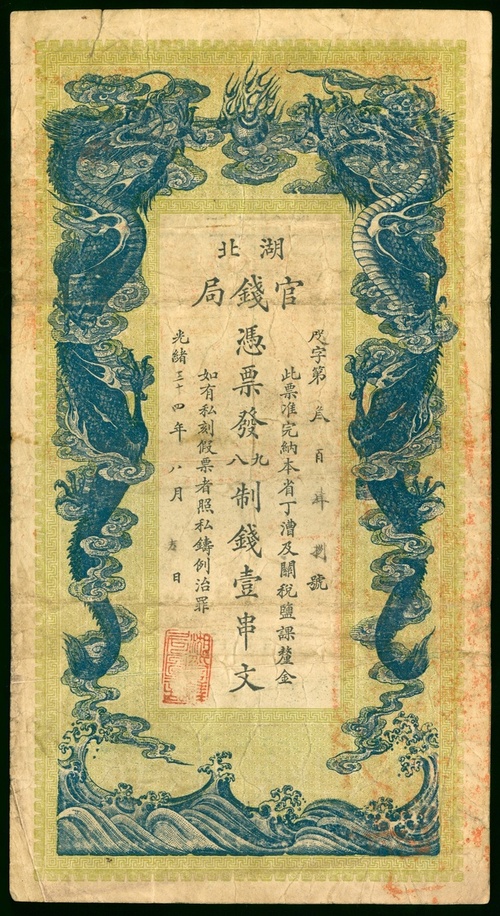 湖北
官錢局
戊字第叁百肆拾捌號
此票准完納本省丁漕及關稅鹽課釐金
憑票發九八制錢壹串文
如有私刻假票者照私鑄例治罪
光緒三十四年八月 日